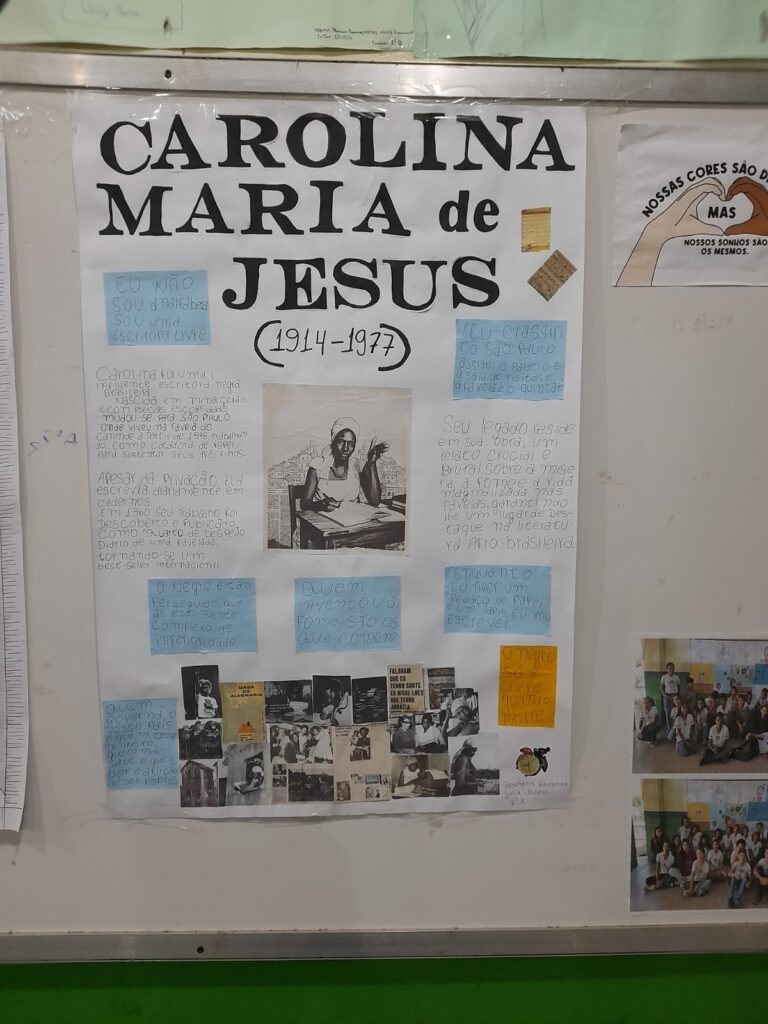 3º B
CAROLINA
MARIA de
JESUS
(1914-1977)
EU NÃO
SOU analfabeta
SOU uma
escritora livre
"EU CLASSIFI
CO SÃO PAULO
assim: o Palacio e
a sala de visitas e
a favela é o quintal
Carolina foi uma
influente escritora negra
Brasileira.
Nascida em mina gerais
e com poucas escolaridade,
mudou-se para São Paulo
onde viveu na favela do
Canindé a partir de 1948, trabalhan
do como catadora de papel
para sustentar seus três filhos.
Apesar da privação, Ela
escrevia diariamente em
cadernos.
Em 1960 seu trabalho foi
Descoberto e publicado,
como "Quarto de Despejo
Diário de uma Favelada,
tornando-se um
best seller internacional
Seu legado reside
em sua obra, um
relato crucial e
Brutal sobre a misé
ria, a fome e a vida
marginalizada nas
favelas, garantindo
lhe um lugar de Des-
taque na literatu-
ra Afro-brasileira.
O Negro é tão
perseguido, que
às vezes sente
complexo de
inferioridade.
Quem
inventou a
fome são os
que comem
Enquanto
Eu tiver um
pedaço de papel
e um lapis, eu vou
escrever
O negro
só é
livre
quando
morre
Quem
Governa o
nosso País
é quem tem
Dinheiro,
quem não
sabe o que é
dor e aflição
de ser pobre.
CASA
DE
ALVENARIA
FALARAM
QUE EU
TENHO SORTE
EU DISSE-LHES
QUE TENHO
AUDÁCIA
3º A
NOSSAS CORES SÃO
MAS
NOSSOS SONHOS SÃO
OS MESMOS.